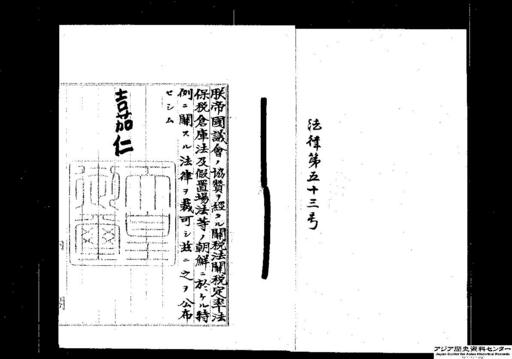 法律第五十三号
朕帝國議會ノ協賛ヲ經タル關税法關税定率法
保税倉庫法及假置場法等ノ朝鮮ニ於ケル特
例ニ關スル法律ヲ裁可シ玆ニ之ヲ公布
セシム
嘉仁
天皇
御璽
アジア歴史資料センター
Japan Center for Asian Historical Records